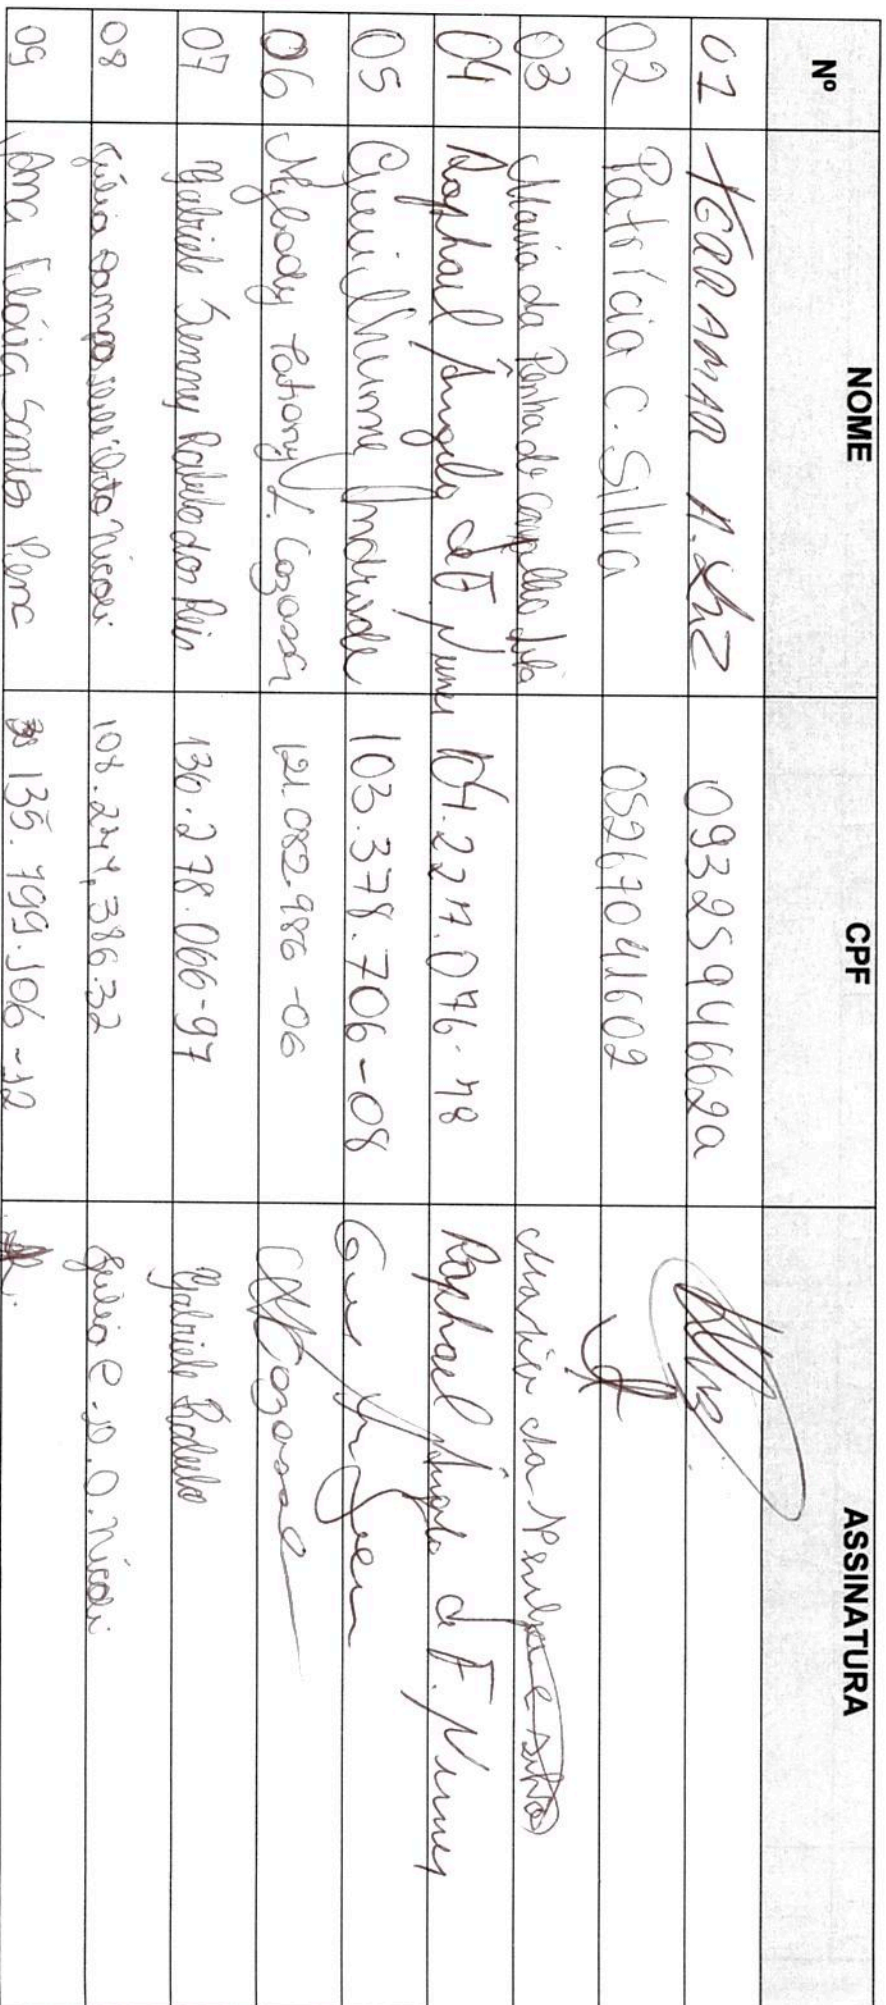 Nº NOME CPF ASSINATURA
01 A. Luz 0932594662a
02 Patrícia C. Silva 05267041602
03 Maria da Penha de Carvalho Maria da
04 Raphael Ângelo de F. Nunes 104.227.076-78 Raphael Ângelo de F. Nunes
05 Guilherme Andrade 103.378.706-08
06 121.082.986-06
07 Gabriele Rabelo dos Reis 136.278.066-97 Gabriele Rabelo
08 Júlia Campos Nicoli 108.244,386.32 Júlia C. D. O. Nicoli
09 Ana Flávia Santos Pena 135.799.506-12